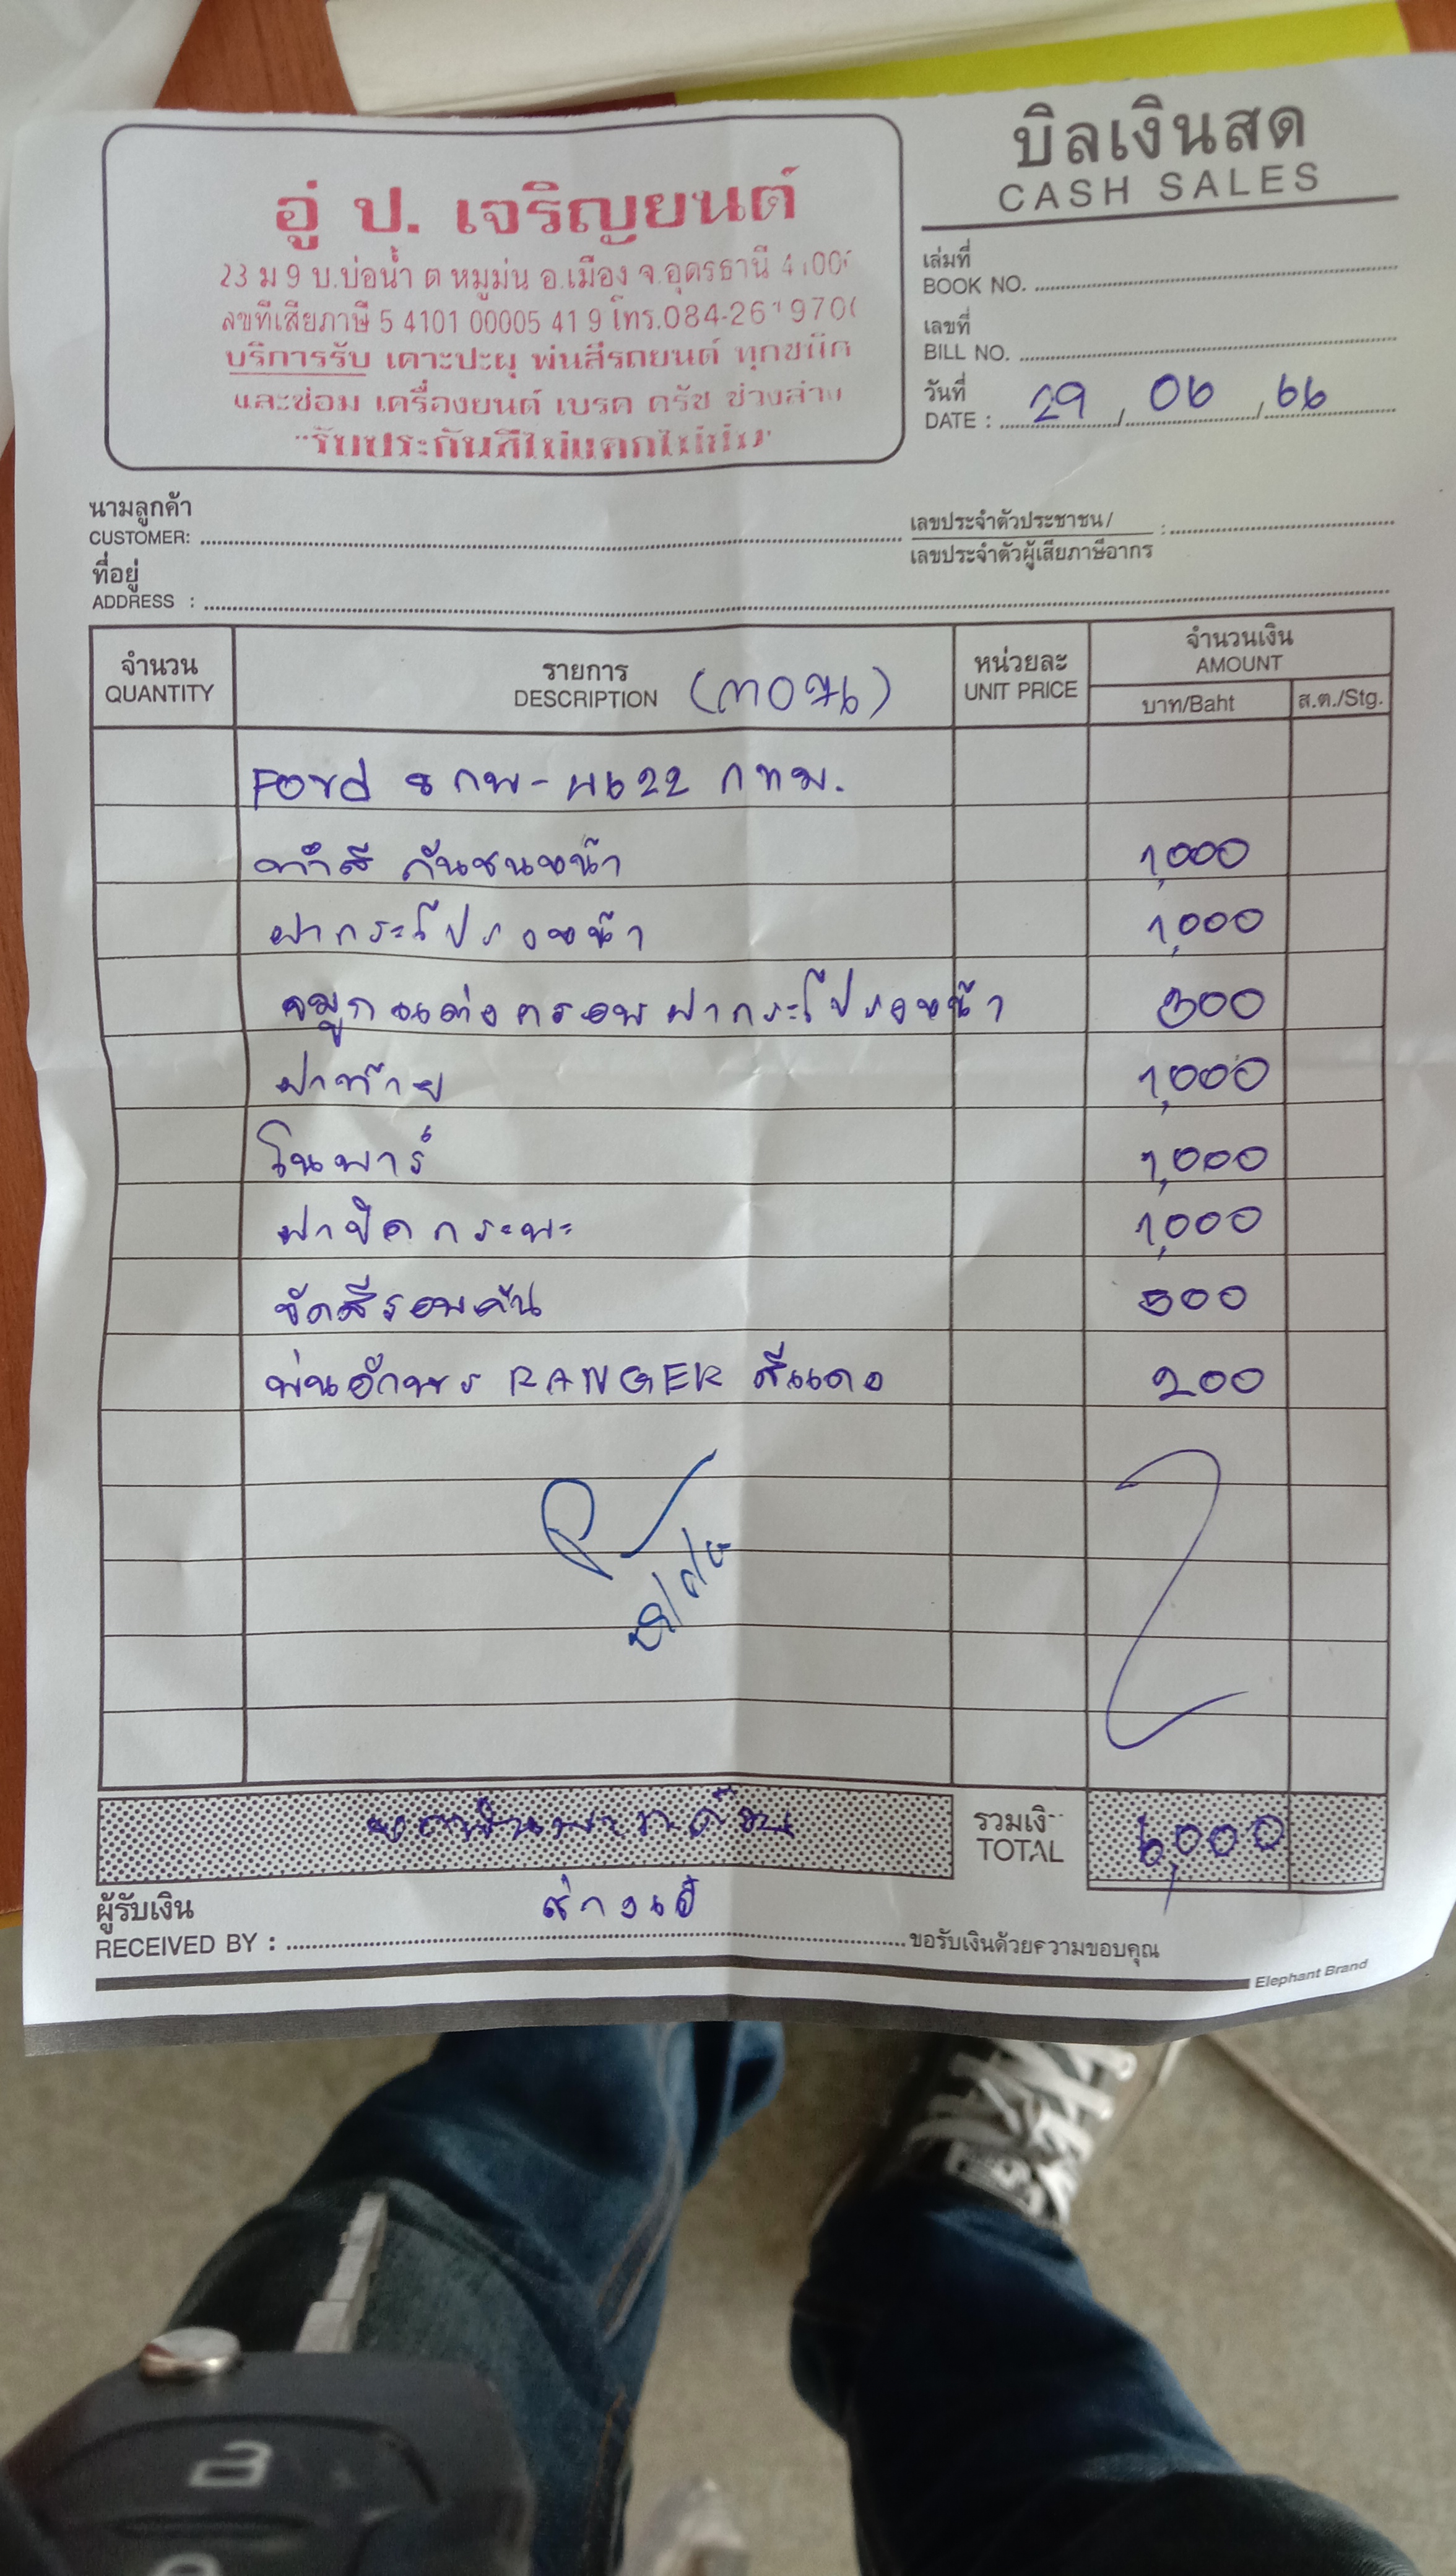 บิลเงินสด
CASH SALES
อู่ ป. เจริญยนต์
23 ม 9 บ.บ่อน้ำ ต หมูม่น อ.เมือง จ.อุดรธานี
ลขที่เสียภาษี 5 4101 00005 41 9 โทร.084-26
บริการรับ เคาะปะผุ พ่นสีรถยนต์ ทุกชนิด
และซ่อม เครื่องยนต์ เบรค ครัช ช่วงล่าง
"รับประกันสีไม่แตกไม่
เล่มที่
BOOK NO.
เลขที่
BILL NO.
วันที่
DATE : 29 / 06 / 66
นามลูกค้า
CUSTOMER:
เลขประจำตัวประชาชน/
เลขประจำตัวผู้เสียภาษีอากร :
ที่อยู่
ADDRESS :
จำนวน รายการ หน่วยละ จำนวนเงิน
QUANTITY DESCRIPTION UNIT PRICE AMOUNT
บาท/Baht ส.ต./Stg.
Ford 8 กพ - 4622 กทม.
ทำสี กันชนหน้า 1,000
ฝากระโปรงหน้า 1,000
จมูกแต่งครอบฝากระโปรงหน้า 300
ฝาท้าย 1,000
โนพาร์ 1,000
ฝาปิดกระบะ 1,000
ขัดสีรอบคัน 500
พ่นอักษร RANGER สีแดง 200
รวมเงิ
TOTAL 6,000
ผู้รับเงิน
RECEIVED BY :
ขอรับเงินด้วยความขอบคุณ
Elephant Brand